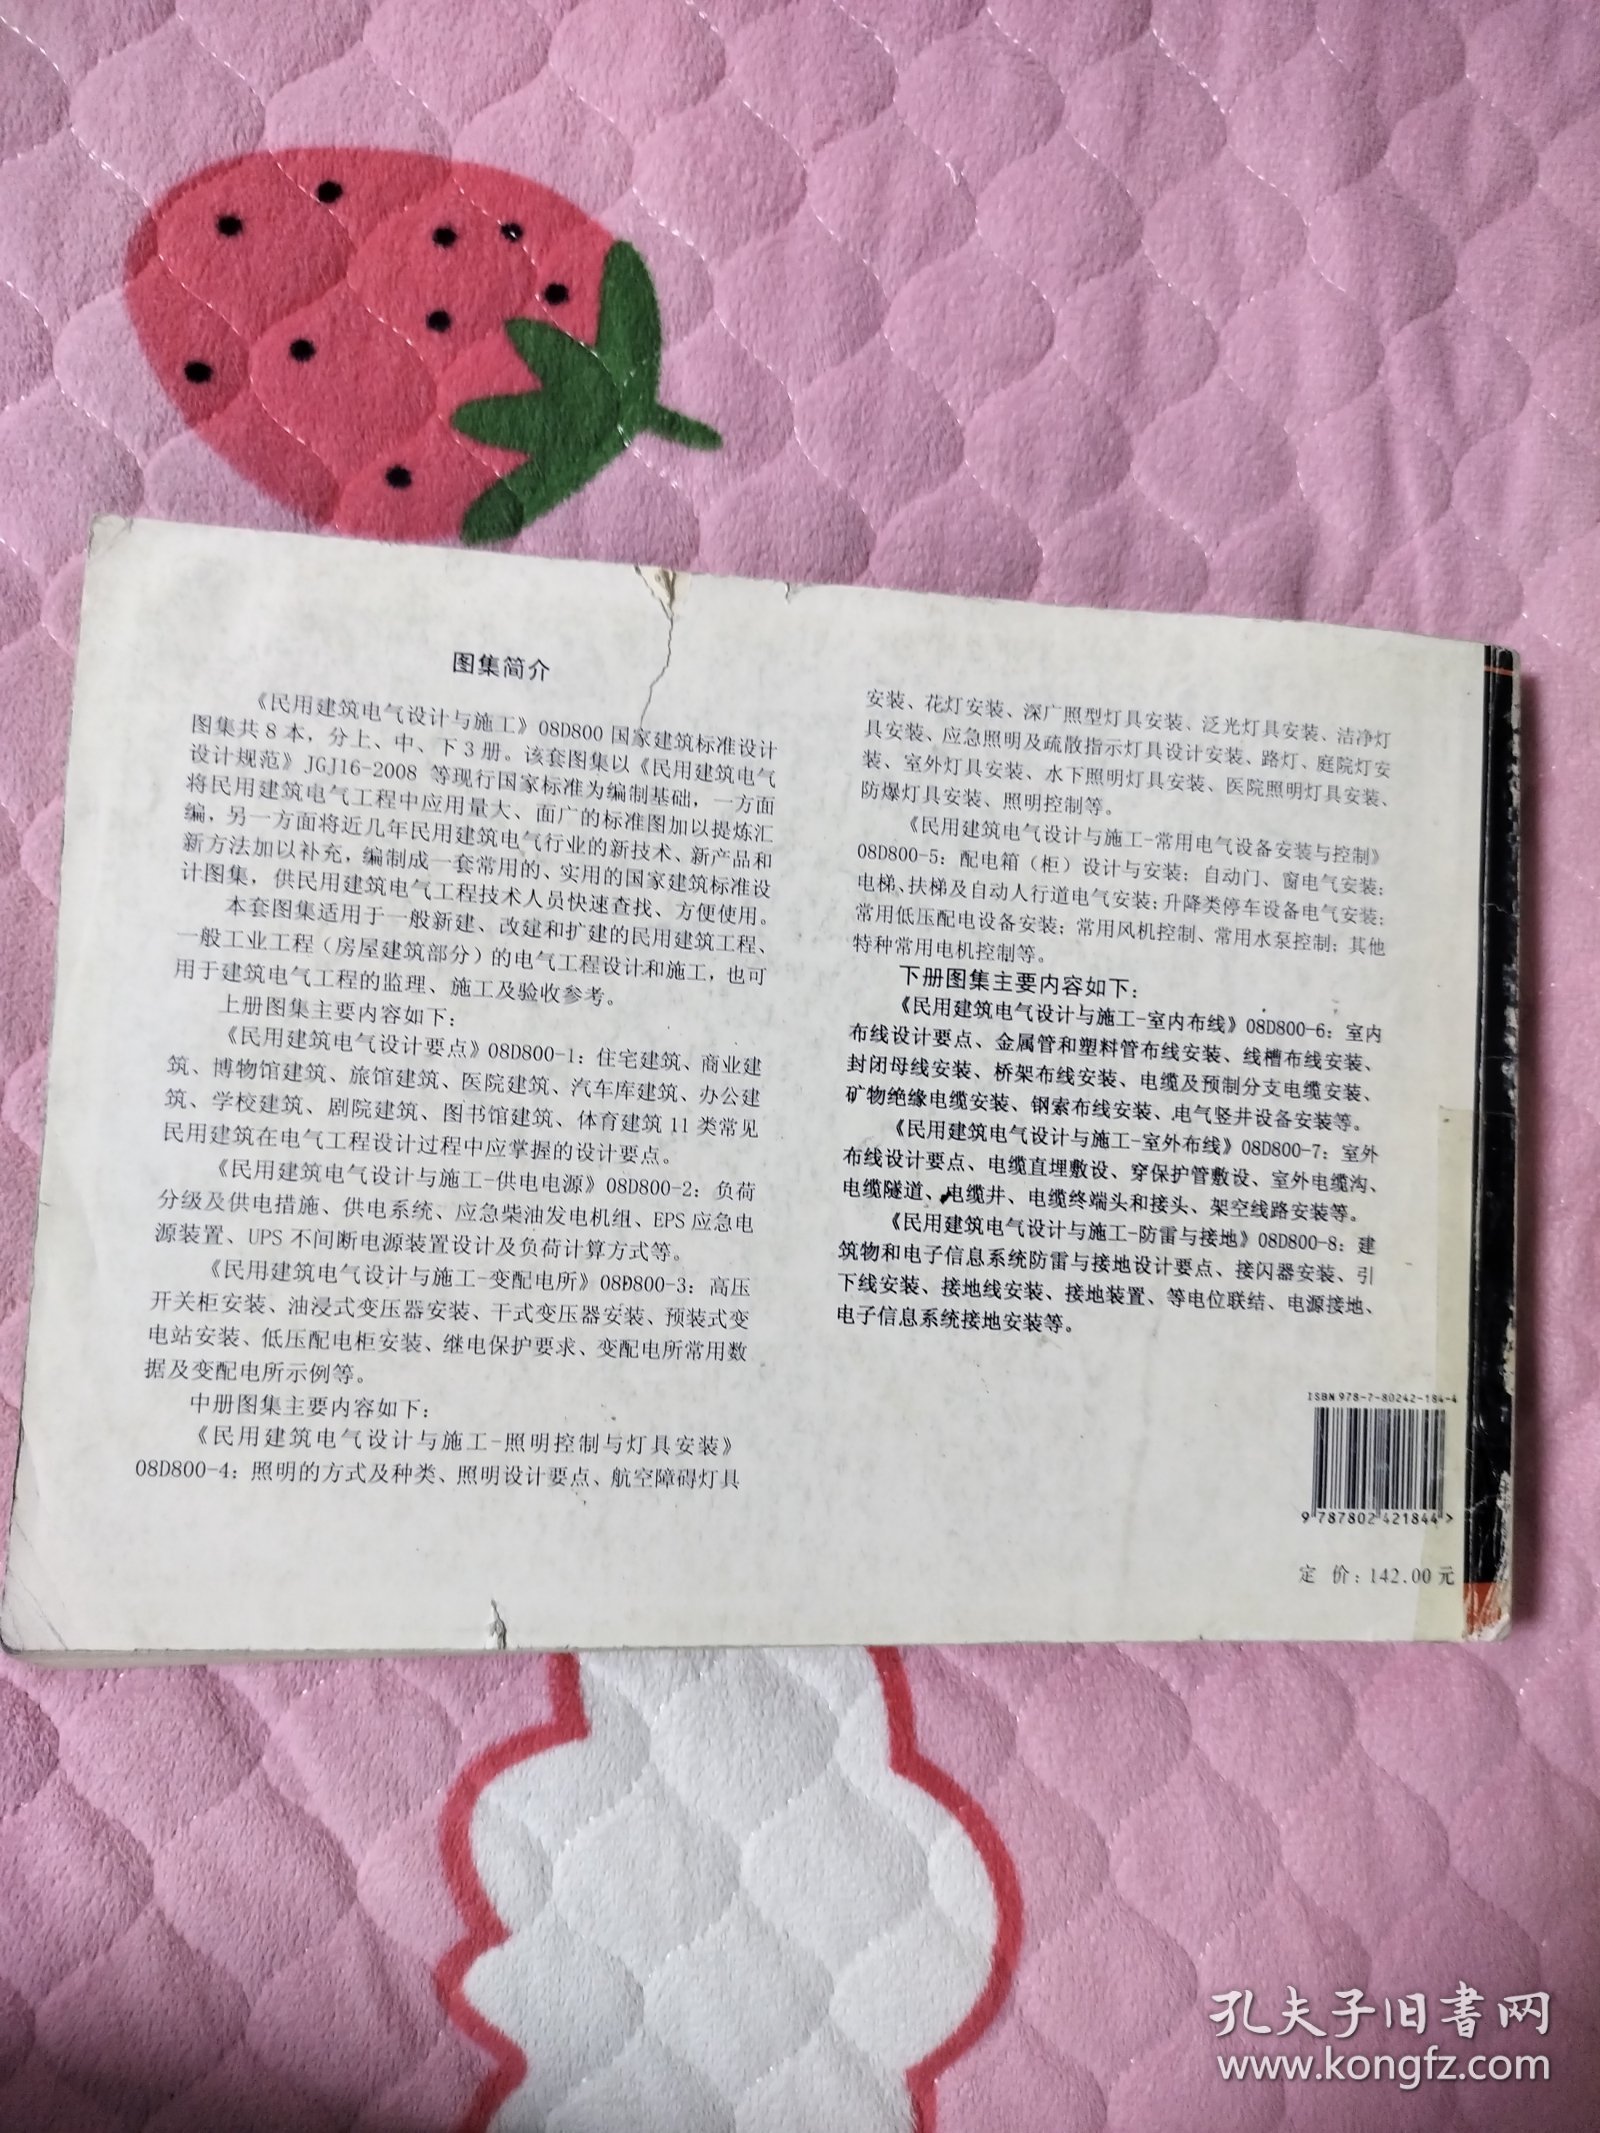 图集简介
《民用建筑电气设计与施工》08D800国家建筑标准设计
图集共8本，分上、中、下3册。该套图集以《民用建筑电气
设计规范》JGJ16-2008 等现行国家标准为编制基础，一方面
将民用建筑电气工程中应用量大、面广的标准图加以提炼汇
编，另一方面将近几年民用建筑电气行业的新技术、新产品和
新方法加以补充，编制成一套常用的、实用的国家建筑标准设
计图集，供民用建筑电气工程技术人员快速查找、方便使用。
本套图集适用于一般新建、改建和扩建的民用建筑工程、
一般工业工程（房屋建筑部分）的电气工程设计和施工，也可
用于建筑电气工程的监理、施工及验收参考。
上册图集主要内容如下：
《民用建筑电气设计要点》08D800-1：住宅建筑、商业建
筑、博物馆建筑、旅馆建筑、医院建筑、汽车库建筑、办公建
筑、学校建筑、剧院建筑、图书馆建筑、体育建筑11类常见
民用建筑在电气工程设计过程中应掌握的设计要点。
《民用建筑电气设计与施工-供电电源》08D800-2：负荷
分级及供电措施、供电系统、应急柴油发电机组、EPS应急电
源装置、UPS不间断电源装置设计及负荷计算方式等。
《民用建筑电气设计与施工-变配电所》08D800-3：高压
开关柜安装、油浸式变压器安装、干式变压器安装、预装式变
电站安装、低压配电柜安装、继电保护要求、变配电所常用数
据及变配电所示例等。
中册图集主要内容如下：
《民用建筑电气设计与施工-照明控制与灯具安装》
08D800-4：照明的方式及种类、照明设计要点、航空障碍灯具
安装、花灯安装、深广照型灯具安装、泛光灯具安装、洁净灯
具安装、应急照明及疏散指示灯具设计安装、路灯、庭院灯安
装、室外灯具安装、水下照明灯具安装、医院照明灯具安装、
防爆灯具安装、照明控制等。
《民用建筑电气设计与施工-常用电气设备安装与控制》
08D800-5：配电箱（柜）设计与安装；自动门、窗电气安装；
电梯、扶梯及自动人行道电气安装；升降类停车设备电气安装；
常用低压配电设备安装；常用风机控制、常用水泵控制；其他
特种常用电机控制等。
下册图集主要内容如下：
《民用建筑电气设计与施工-室内布线》08D800-6：室内
布线设计要点、金属管和塑料管布线安装、线槽布线安装、
封闭母线安装、桥架布线安装、电缆及预制分支电缆安装、
矿物绝缘电缆安装、钢索布线安装、电气竖井设备安装等。
《民用建筑电气设计与施工-室外布线》08D800-7：室外
布线设计要点、电缆直埋敷设、穿保护管敷设、室外电缆沟、
电缆隧道、电缆井、电缆终端头和接头、架空线路安装等。
《民用建筑电气设计与施工-防雷与接地》08D800-8：建
筑物和电子信息系统防雷与接地设计要点、接闪器安装、引
下线安装、接地线安装、接地装置、等电位联结、电源接地、
电子信息系统接地安装等。
ISBN 978-7-80242-184-4
9 787802 421844>
定 价：142.00元
孔夫子旧书网
www.kongfz.com